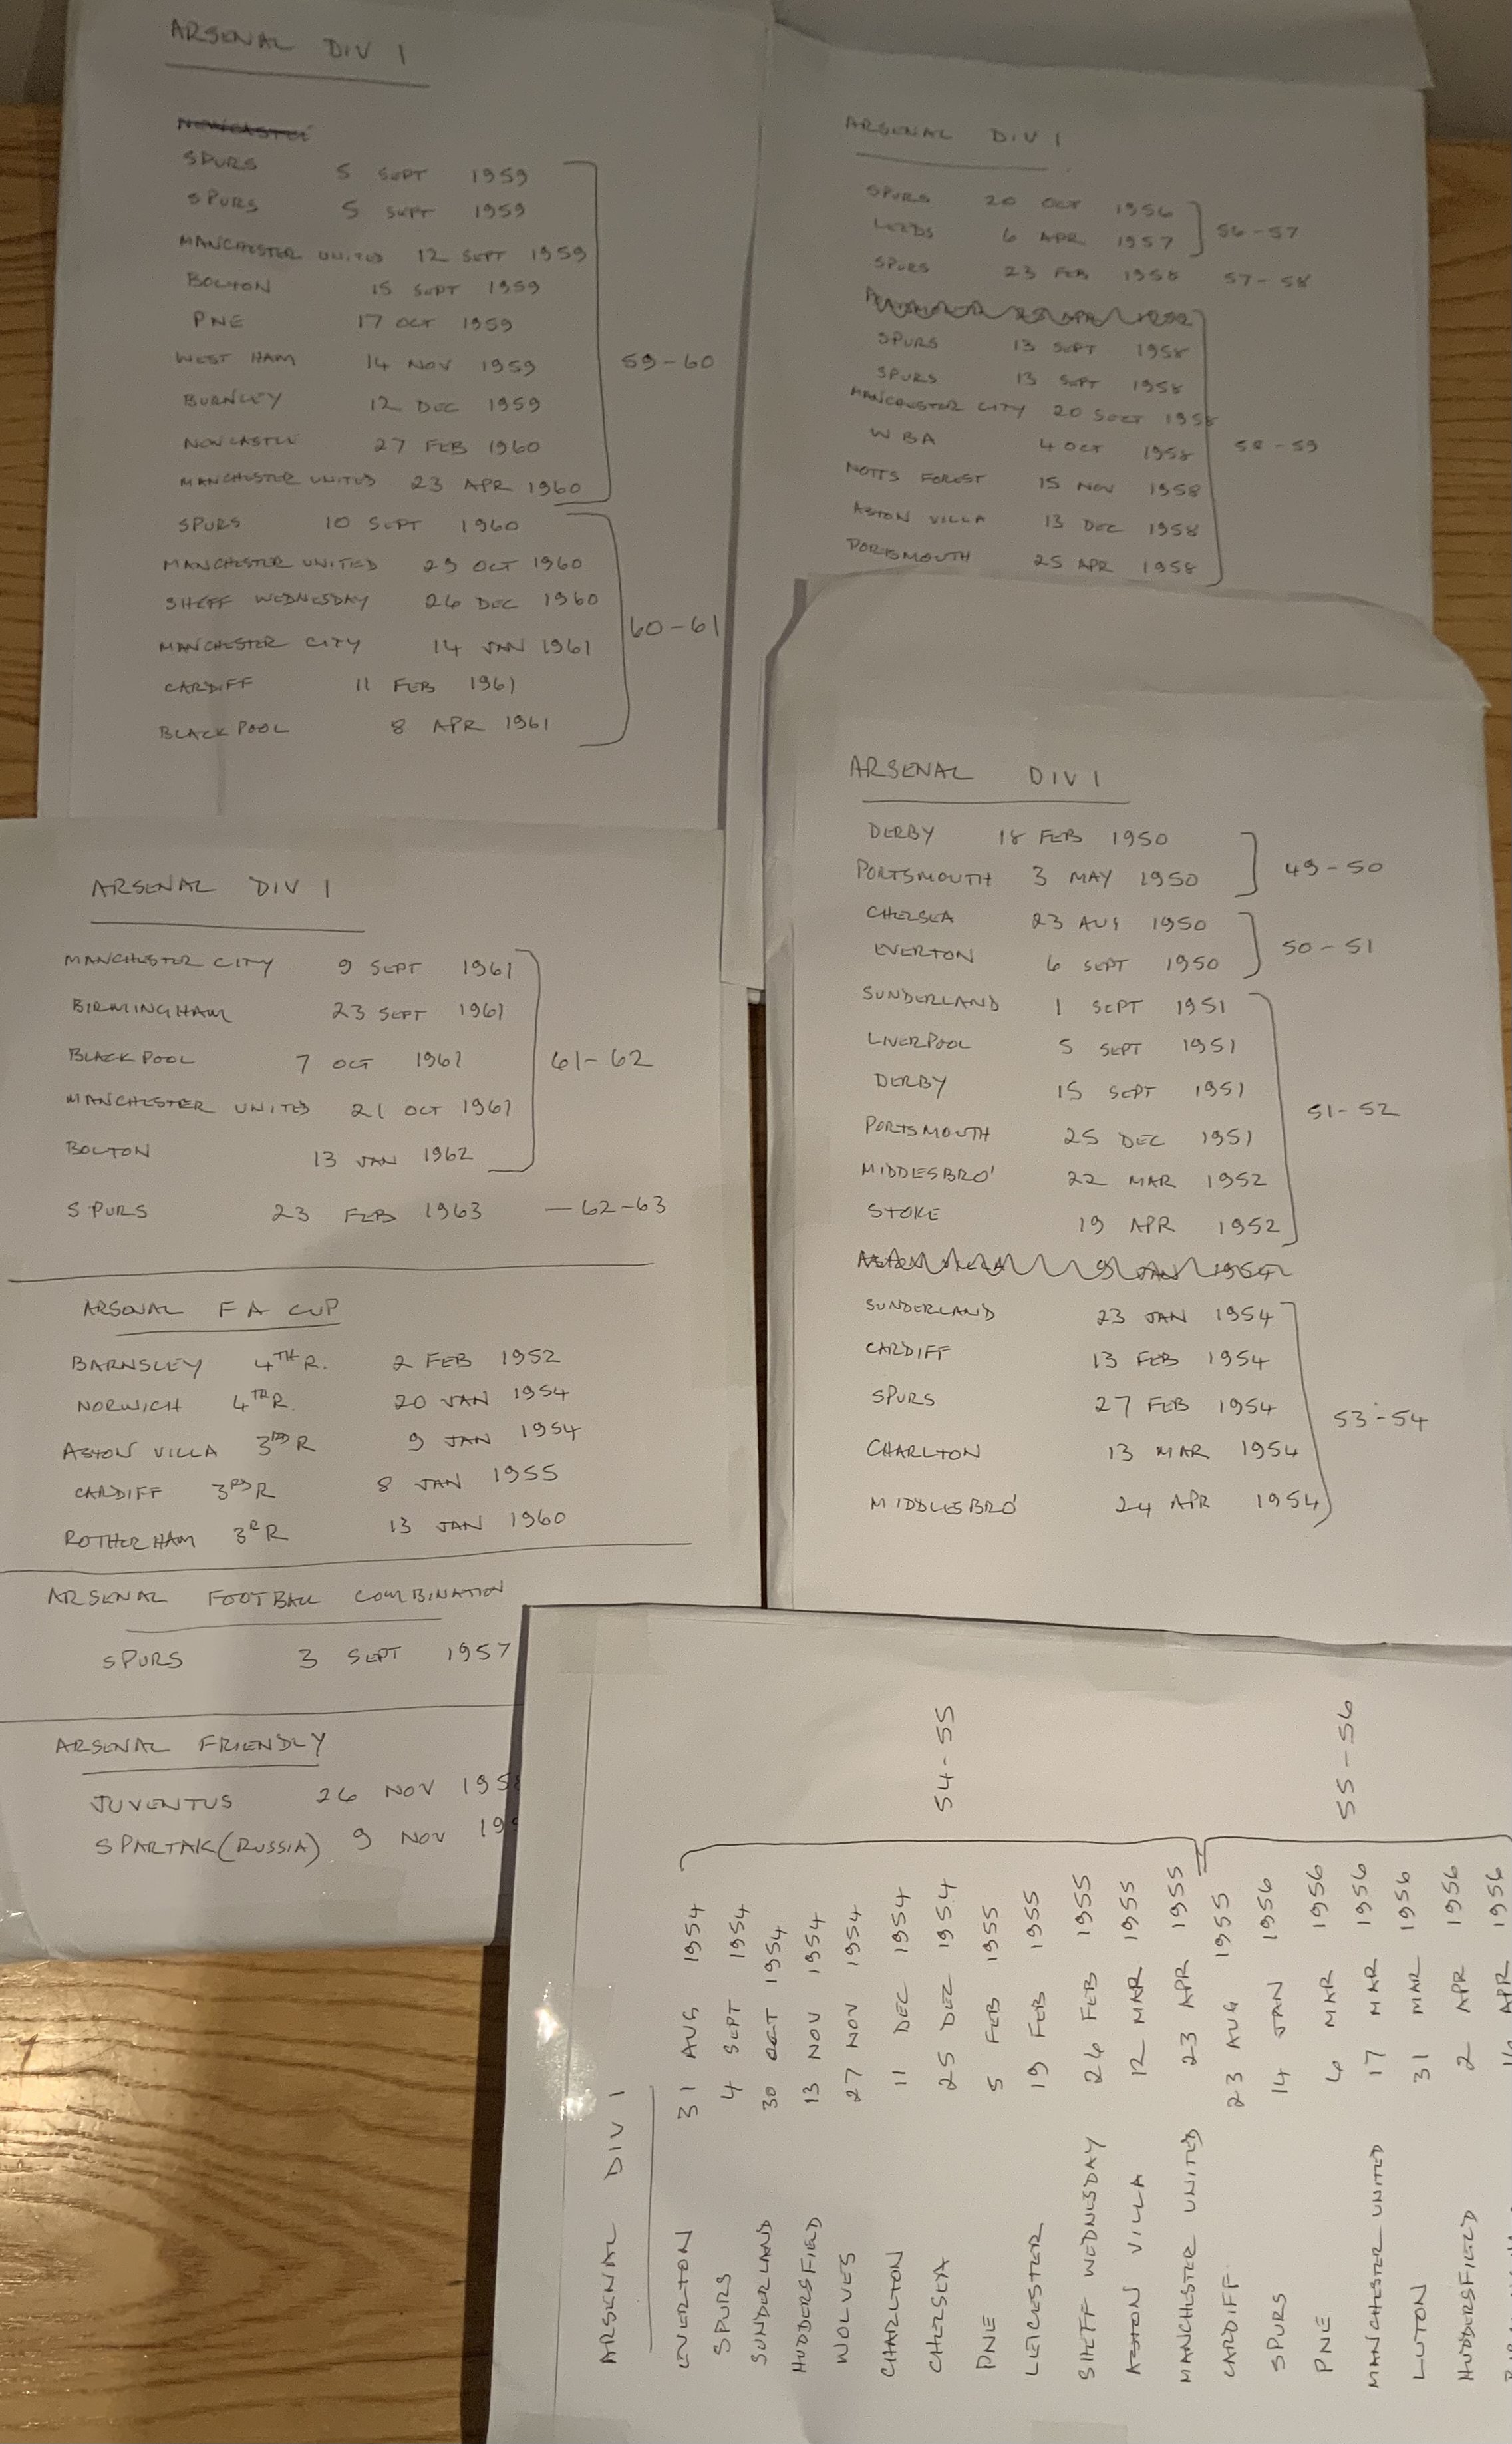 ARSENAL DIV 1
NEWCASTLE
SPURS 5 SEPT 1959
SPURS 5 SEPT 1959
MANCHESTER UNITED 12 SEPT 1959
BOLTON 15 SEPT 1959
PNE 17 OCT 1959
WEST HAM 14 NOV 1959
BURNLEY 12 DEC 1959
NEWCASTLE 27 FEB 1960
MANCHESTER UNITED 23 APR 1960
59-60
SPURS 10 SEPT 1960
MANCHESTER UNITED 29 OCT 1960
SHEFF WEDNESDAY 26 DEC 1960
MANCHESTER CITY 14 JAN 1961
CARDIFF 11 FEB 1961
BLACKPOOL 8 APR 1961
60-61
ARSENAL DIV 1
SPURS 20 OCT 1956
LEEDS 6 APR 1957
56-57
SPURS 23 FEB 1958 57-58
SPURS 13 SEPT 1958
SPURS 13 SEPT 1958
MANCHESTER CITY 20 SEPT 1958
WBA 4 OCT 1958
NOTTS FOREST 15 NOV 1958
ASTON VILLA 13 DEC 1958
PORTSMOUTH 25 APR 1958
58-59
ARSENAL DIV 1
DERBY 18 FEB 1950
PORTSMOUTH 3 MAY 1950
49-50
CHELSEA 23 AUG 1950
EVERTON 6 SEPT 1950
50-51
SUNDERLAND 1 SEPT 1951
LIVERPOOL 5 SEPT 1951
DERBY 15 SEPT 1951
PORTSMOUTH 25 DEC 1951
MIDDLESBRO' 22 MAR 1952
STOKE 19 APR 1952
51-52
ASTON VILLA 9 JAN 1954
SUNDERLAND 23 JAN 1954
CARDIFF 13 FEB 1954
SPURS 27 FEB 1954
CHARLTON 13 MAR 1954
MIDDLESBRO' 24 APR 1954
53-54
ARSENAL DIV 1
MANCHESTER CITY 9 SEPT 1961
BIRMINGHAM 23 SEPT 1961
BLACKPOOL 7 OCT 1961
MANCHESTER UNITED 21 OCT 1961
BOLTON 13 JAN 1962
61-62
SPURS 23 FEB 1963 — 62-63
ARSENAL F A CUP
BARNSLEY 4TH R. 2 FEB 1952
NORWICH 4TH R. 20 JAN 1954
ASTON VILLA 3RD R 9 JAN 1954
CARDIFF 3RD R 8 JAN 1955
ROTHERHAM 3R R 13 JAN 1960
ARSENAL FOOTBALL COMBINATION
SPURS 3 SEPT 1957
ARSENAL FRIENDLY
JUVENTUS 26 NOV 195
SPARTAK (RUSSIA) 9 NOV 19
ARSENAL DIV 1
EVERTON 31 AUG 1954
SPURS 4 SEPT 1954
SUNDERLAND 30 OCT 1954
HUDDERSFIELD 13 NOV 1954
WOLVES 27 NOV 1954
CHARLTON 11 DEC 1954
CHELSEA 25 DEC 1954
PNE 5 FEB 1955
LEICESTER 19 FEB 1955
SHEFF WEDNESDAY 26 FEB 1955
ASTON VILLA 12 MAR 1955
MANCHESTER UNITED 23 APR 1955
54-55
CARDIFF. 23 AUG 1955
SPURS 14 JAN 1956
PNE 6 MAR 1956
MANCHESTER UNITED 17 MAR 1956
LUTON 31 MAR 1956
HUDDERSFIELD 2 APR 1956
APR 1956
55-56